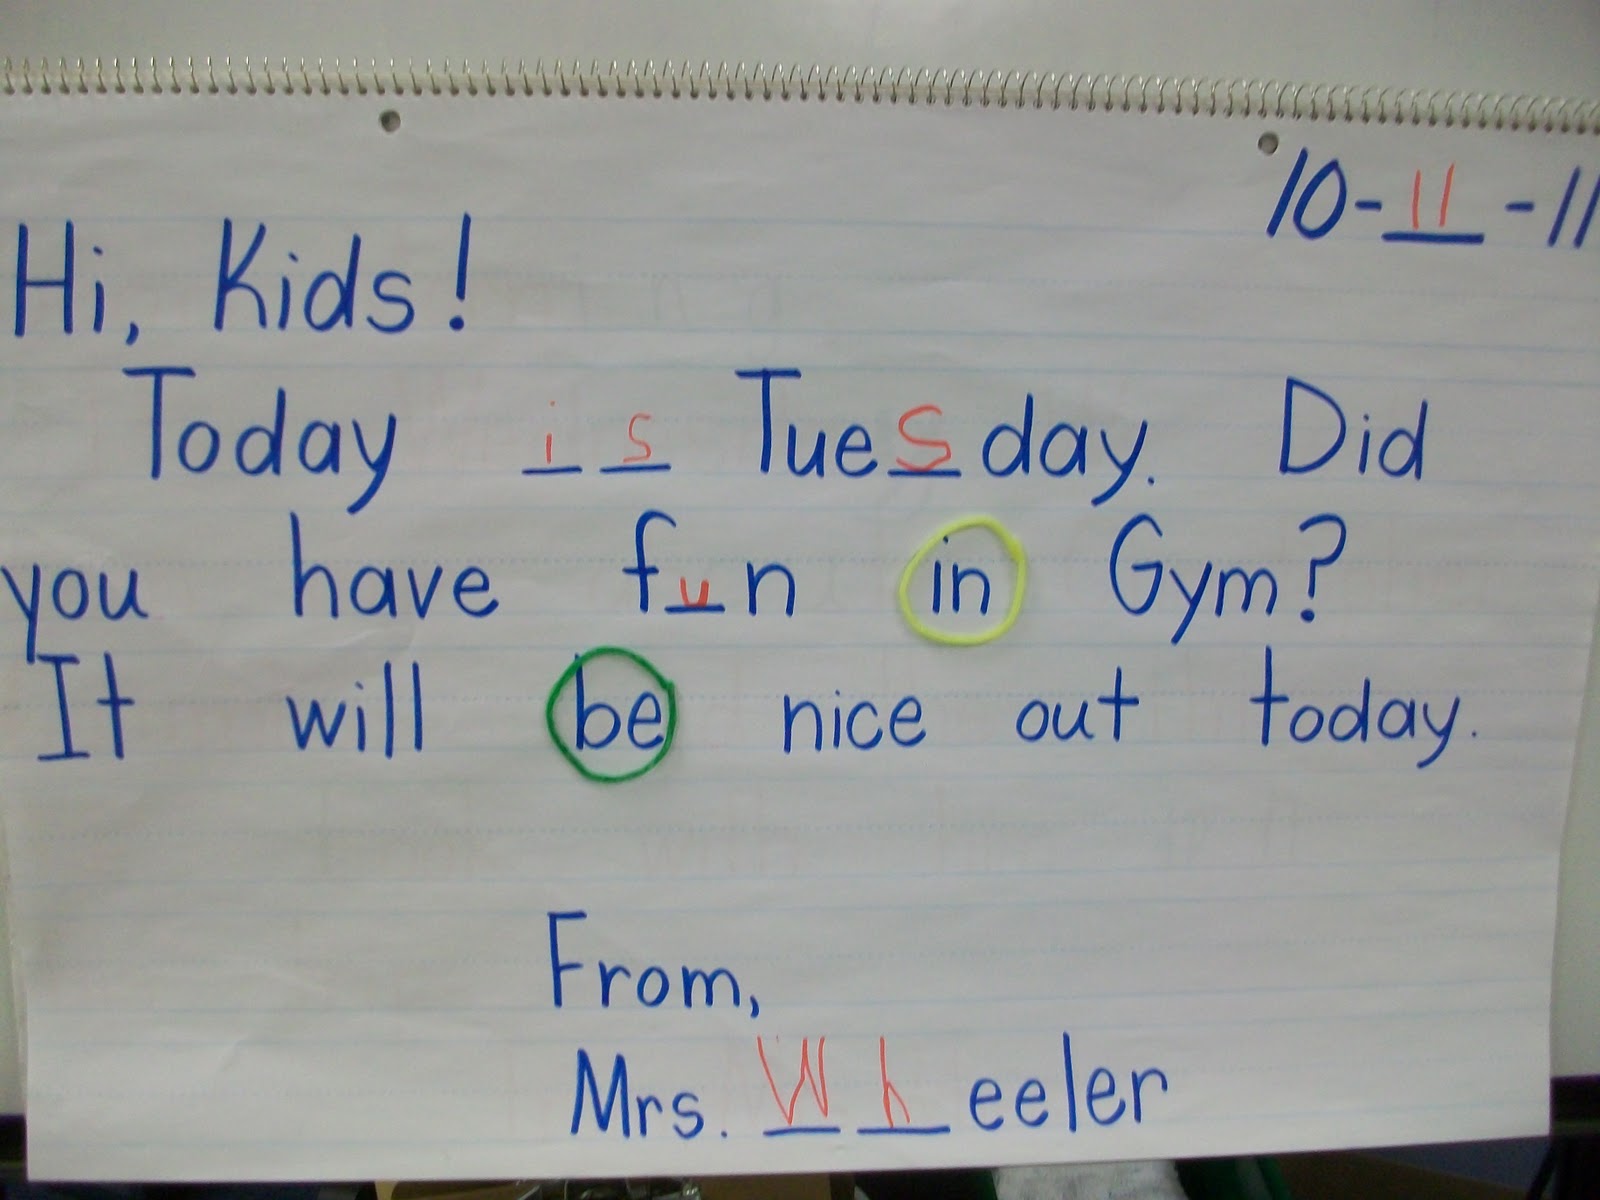 10-11-11
Hi, Kids!
Today is Tuesday. Did
you have fun in Gym?
It will be nice out today.
From,
Mrs. Wheeler